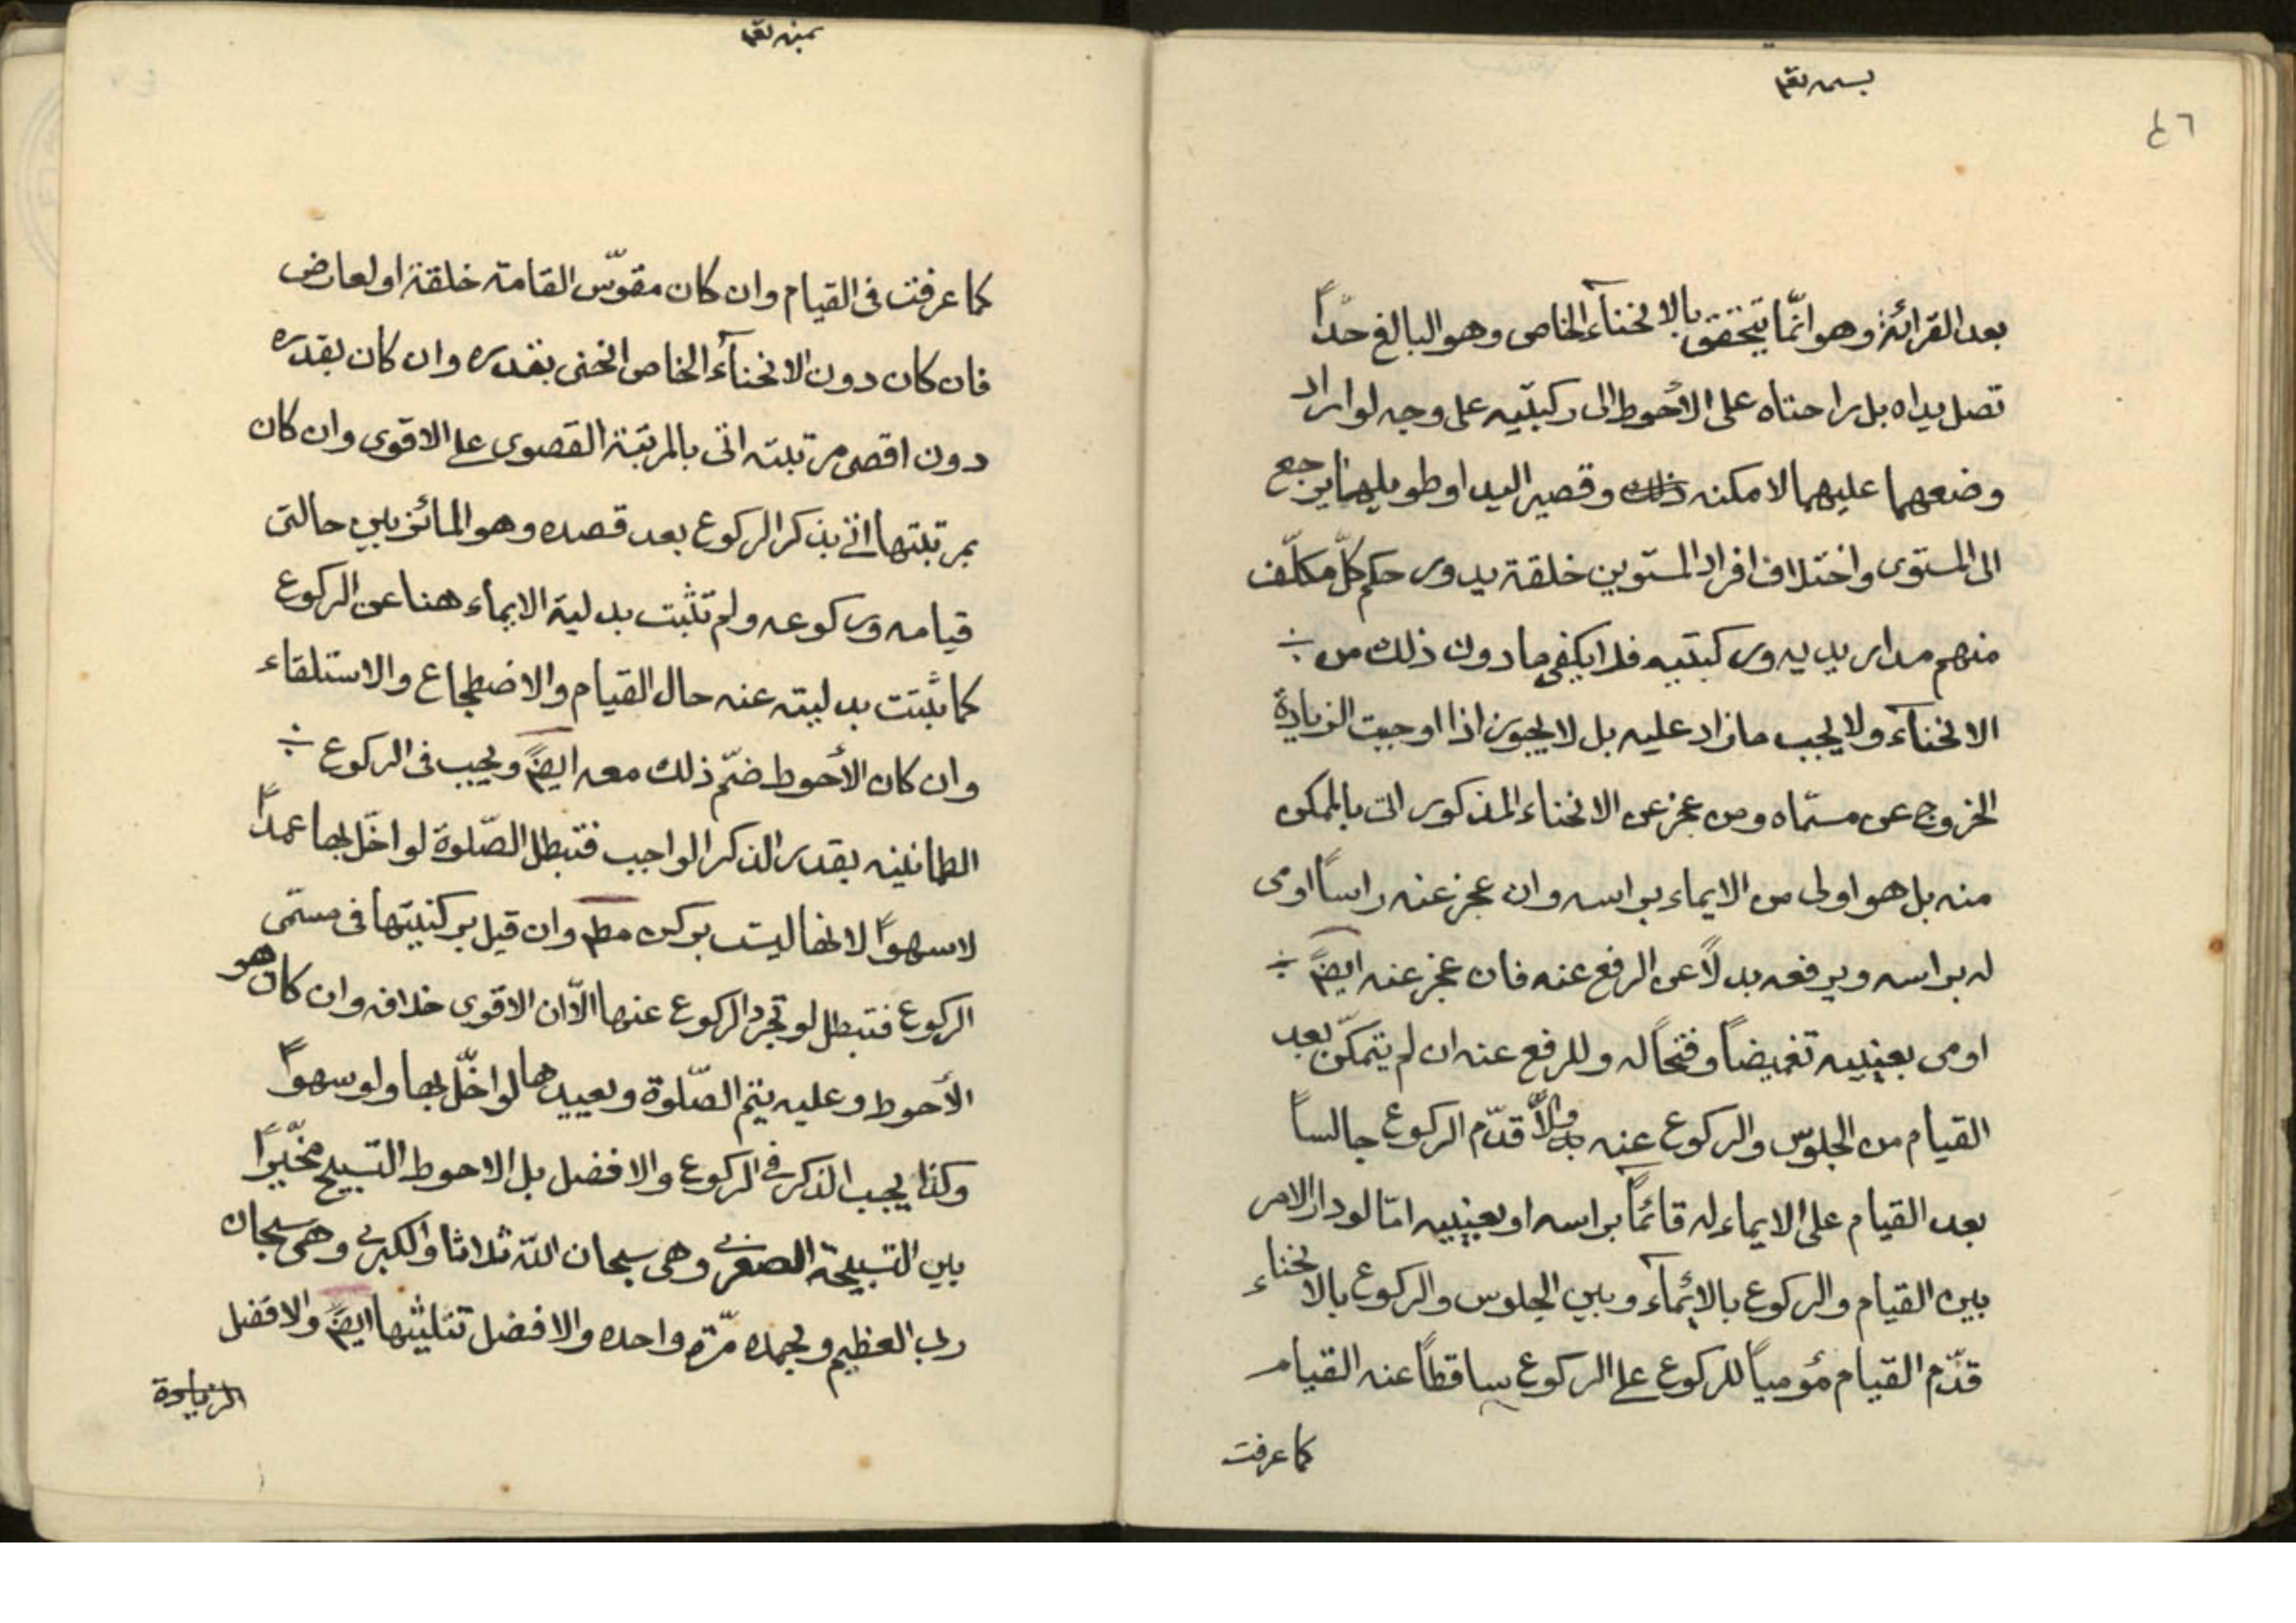 بسمه تعم
٤٦
بعد القرائة وهو انّما يتحقق بالانحنآء الخاص وهو البالغ حدّاً
تصل يداه بل راحتاه على الأحوط الى ركبتيه على وجه لو اراد
وضعهما عليهما لامكنه ذلك وقصير اليد او طويلهما يرجع
الى المستوى واختلاف افراد المستوين خلقة يدور حكم كلّ مكلّف
منهم مدار يديه وركبتيه فلا يكفى ما دون ذلك من
الانحنآء ولا يجب ما زاد عليه بل لا يجوز اذا اوجبت الزيادة
الخروج عن مسمّاه ومن عجز عن الانحناء المذكور اتى بالممكن
منه بل هو اولى من الايماء براسه وان عجز عنه راساً اومى
له براسه ويرفعه بدلاً عن الرفع عنه فان عجز عنه ايضاً
اومى بعينيه تغميضاً وفتحاً له وللرفع عنه ان لم يتمكّن بعد
القيام من الجلوس والركوع عنه والّا قدّم الركوع جالساً
بعد القيام على الايماء له قائماً براسه او بعينيه امّا لو دار الامر
بين القيام والركوع بالائمآء وبين الجلوس والركوع بالانحناء
قدّم القيام مؤمياً للركوع على الركوع ساقطاً عنه القيام
كما عرفت
كما عرفت فى القيام وان كان مقوّس القامة خلقة او لعارض
فان كان دون الانحنآء الخاص انحنى بقدره وان كان بقدره
دون اقصى مرتبته اتى بالمرتبة القصوى على الاقوى وان كان
بمرتبتها اتى بذكر الركوع بعد قصده وهو المائز بين حالتى
قيامه وركوعه ولم تثبت بدلية الايماء هنا عن الركوع
كما ثبتت بدليته عنه حال القيام والاضطجاع والاستلقاء
وان كان الأحوط ضمّ ذلك معه ايضاً ويجب فى الركوع
الطمانينه بقدر الذكر الواجب فتبطل الصّلوة لو اخّل بها عمداً
لا سهواً لانها ليست بركن مطم وان قيل بركنيتها فى مسمّى
الركوع فتبطل لو تجرد الركوع عنها الّا ان الاقوى خلافه وان كان هو
الأحوط وعليه يتم الصّلوة ويعيدها لو اخّل بها ولو سهواً
وكذا يجب الذكر فى الركوع والافضل بل الاحوط التسبيح مخّيراً
بين التسبيحة الصغرى وهى سبحان اللّه ثلاثا والكبرى وهى سبحان
ربى العظيم وبحمده مرّة واحده والافضل تثليثها ايضاً والافضل
الزيادة